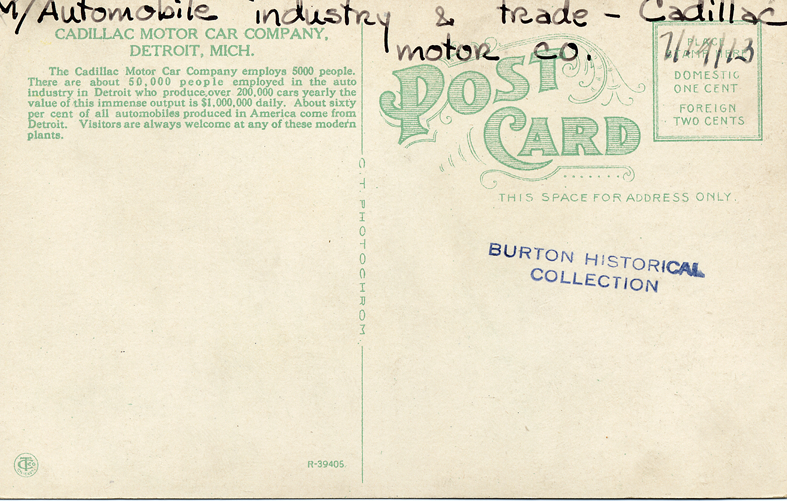 M/Automobile industry & trade - Cadillac
motor co.
CADILLAC MOTOR CAR COMPANY,
DETROIT, MICH.
The Cadillac Motor Car Company employs 5000 people.
There are about 50,000 people employed in the auto
industry in Detroit who produce over 200,000 cars yearly the
value of this immense output is $1,000,000 daily. About sixty
per cent of all automobiles produced in America come from
Detroit. Visitors are always welcome at any of these modern
plants.
C. T. PHOTOCHROM
R-39405
POST
CARD
PLACE
STAMP HERE
DOMESTIC
ONE CENT
FOREIGN
TWO CENTS
THIS SPACE FOR ADDRESS ONLY.
BURTON HISTORICAL
COLLECTION